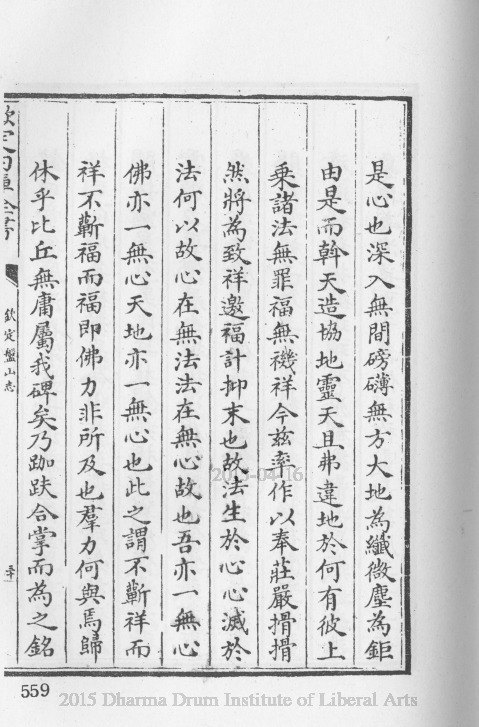 是心也深入無間磅礴無方大地為纖微塵為鉅
由是而斡天造協地靈天且弗違地於何有彼上
乘諸法無罪福無禨祥今兹率作以奉莊嚴搰搰
然將為致祥邀福計抑末也故法生於心心滅於
法何以故心在無法法在無心故也吾亦一無心
佛亦一無心天地亦一無心也此之謂不蘄祥而
祥不蘄福而福即佛力非所及也羣力何與焉歸
休乎比丘無庸屬我碑矣乃跏趺合掌而為之銘
欽定四庫全書
欽定盤山志
559
2015-04-16
2015 Dharma Drum Institute of Liberal Arts